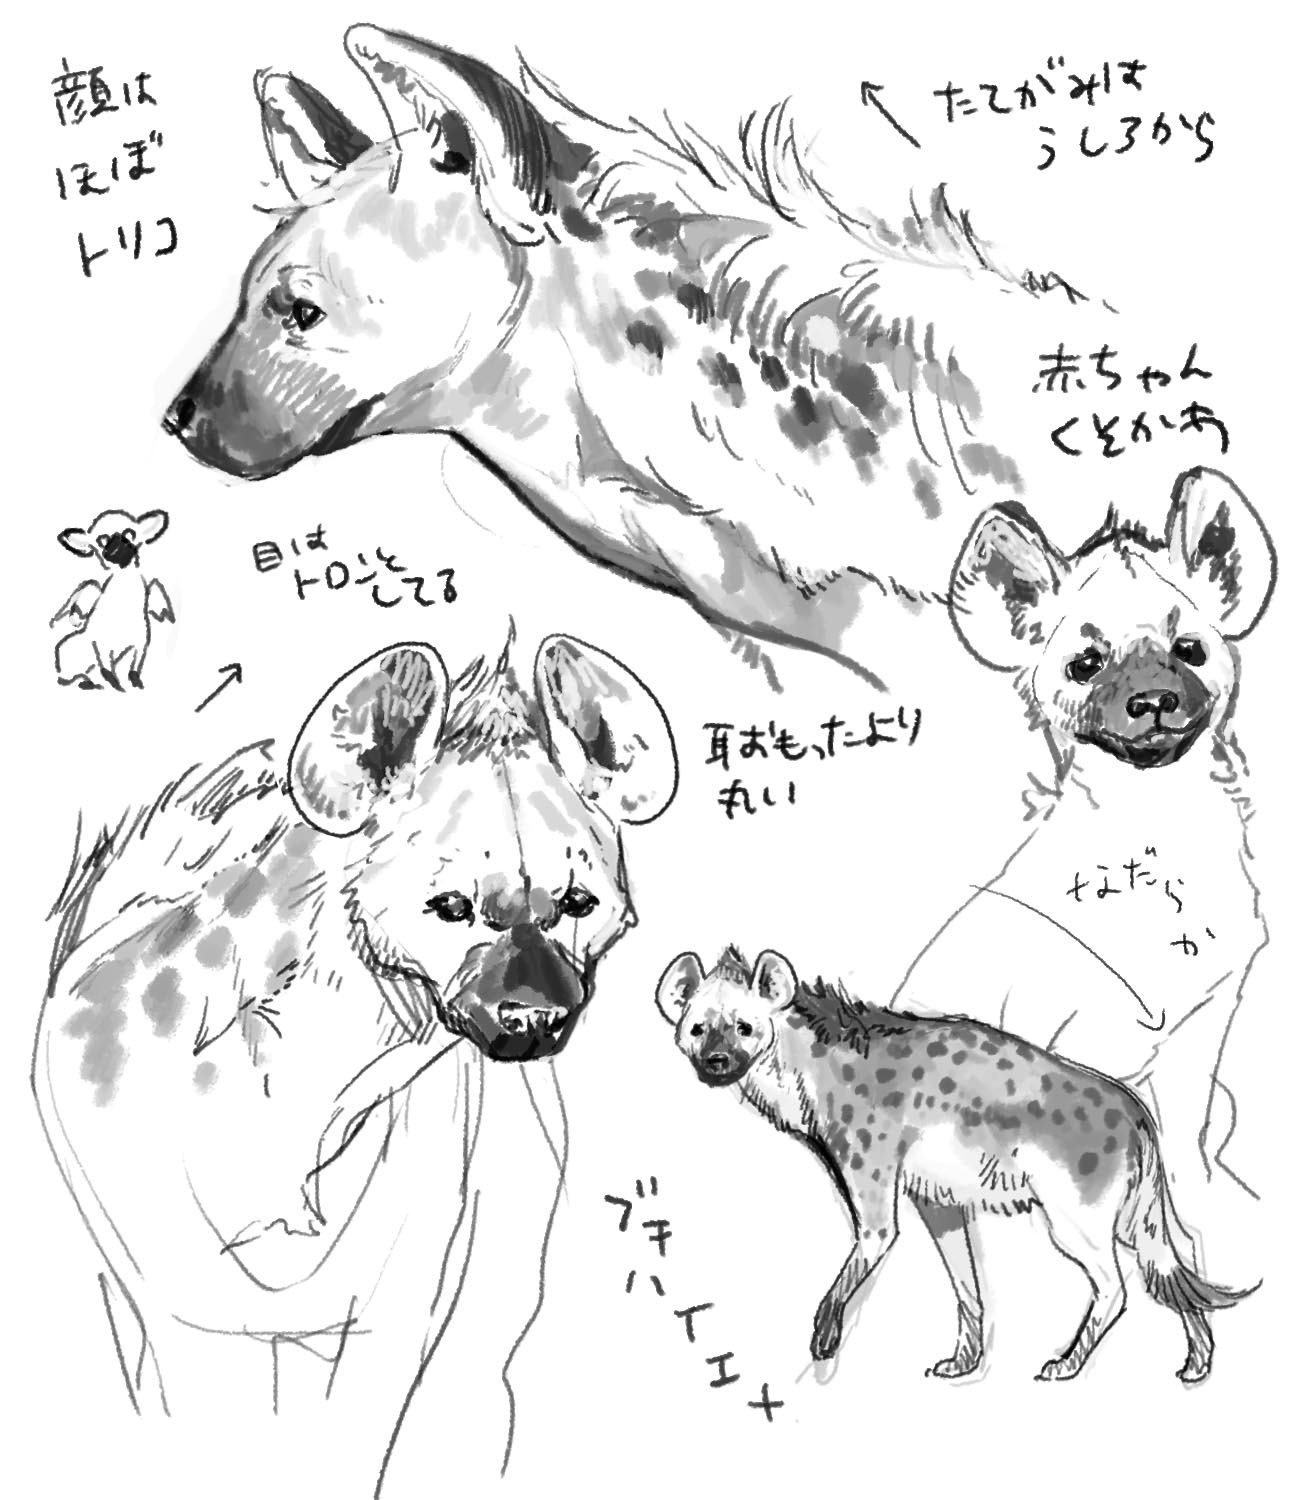 顔は
ほぼ
トリコ
たてがみは
うしろから
赤ちゃん
くそかわ
目は
トロンと
してる
耳おもったより
丸い
なだらか
ブチハイエナ